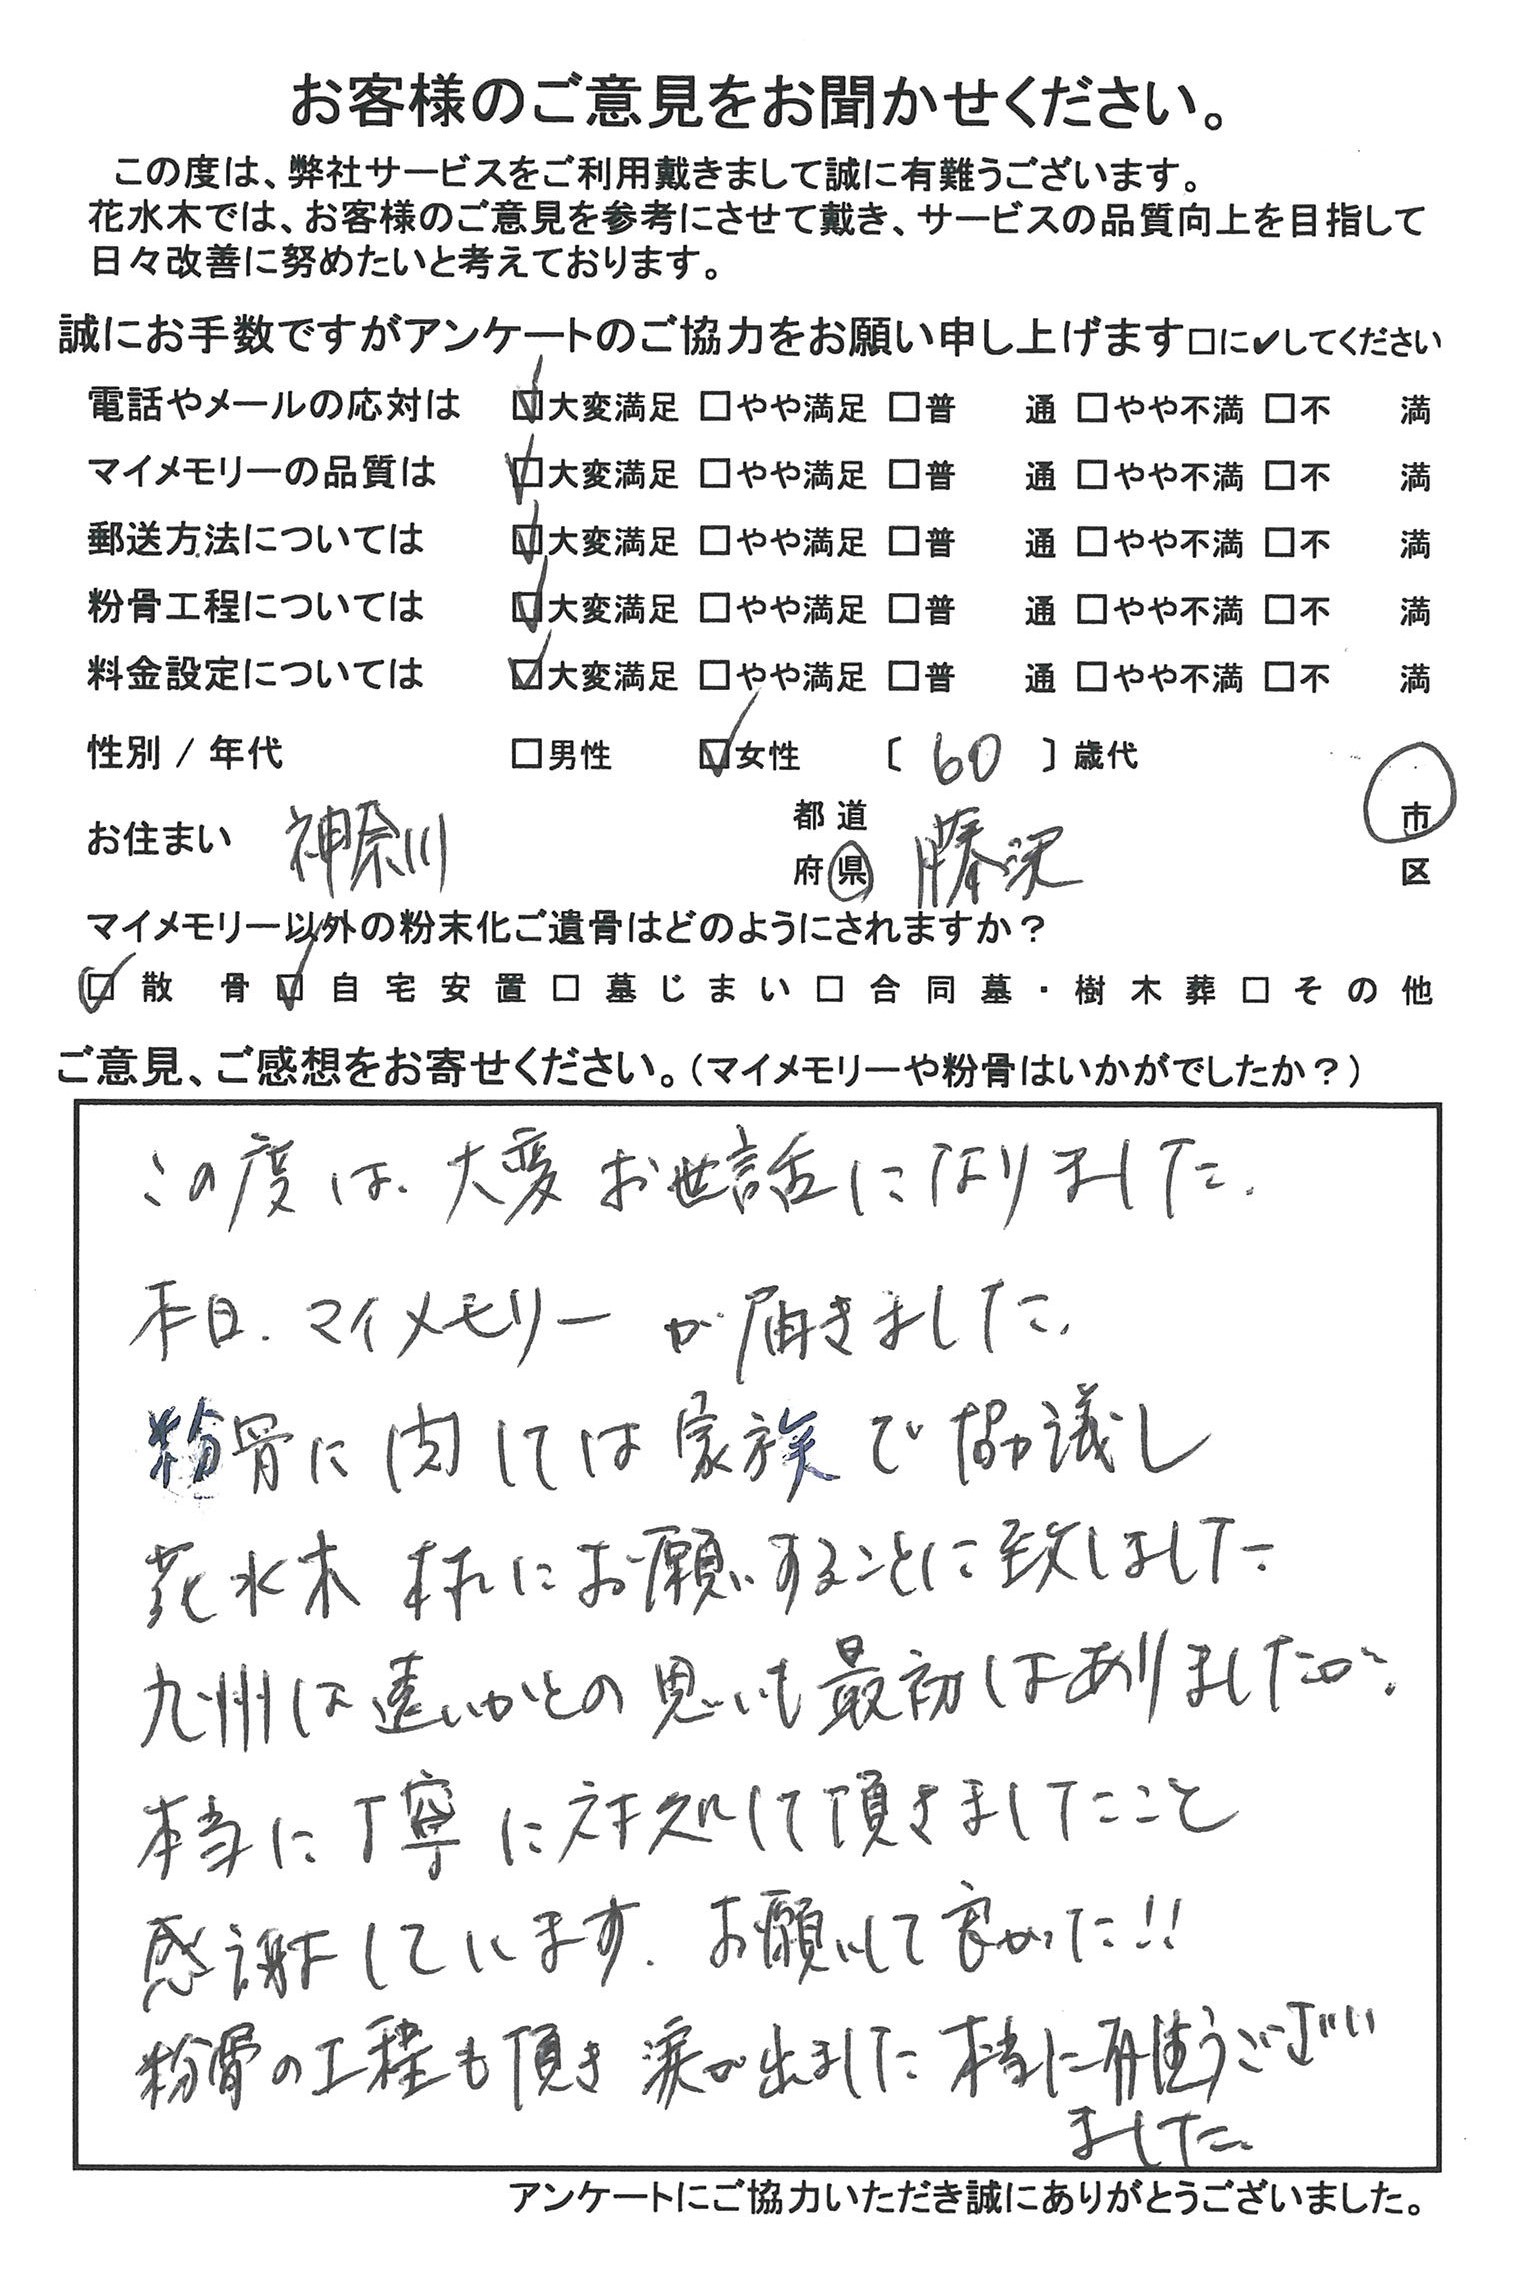 お客様のご意見をお聞かせください。
この度は、弊社サービスをご利用戴きまして誠に有難うございます。
花水木では、お客様のご意見を参考にさせて戴き、サービスの品質向上を目指して
日々改善に努めたいと考えております。
誠にお手数ですがアンケートのご協力をお願い申し上げます□に✔してください
電話やメールの応対は ☑大変満足 □やや満足 □普 通 □やや不満 □不 満
マイメモリーの品質は ☑大変満足 □やや満足 □普 通 □やや不満 □不 満
郵送方法については ☑大変満足 □やや満足 □普 通 □やや不満 □不 満
粉骨工程については ☑大変満足 □やや満足 □普 通 □やや不満 □不 満
料金設定については ☑大変満足 □やや満足 □普 通 □やや不満 □不 満
性別 / 年代 □男性 ☑女性 〔 60 〕歳代
お住まい 神奈川 都道府県 藤沢 市区
マイメモリー以外の粉末化ご遺骨はどのようにされますか？
☑散骨 ☑自宅安置 □墓じまい □合同墓・樹木葬 □その他
ご意見、ご感想をお寄せください。（マイメモリーや粉骨はいかがでしたか？）
この度は、大変お世話になりました。
本日、マイメモリーが届きました。
粉骨に関しては家族で協議し
花水木様にお願いすることに致しました
九州は遠いかとの思いも最初はありましたが、
本当に丁寧に対処して頂きましたこと
感謝しています。お願いして良かった!!
粉骨の工程も頂き涙が出ました本当に有難うござい
ました。
アンケートにご協力いただき誠にありがとうございました。